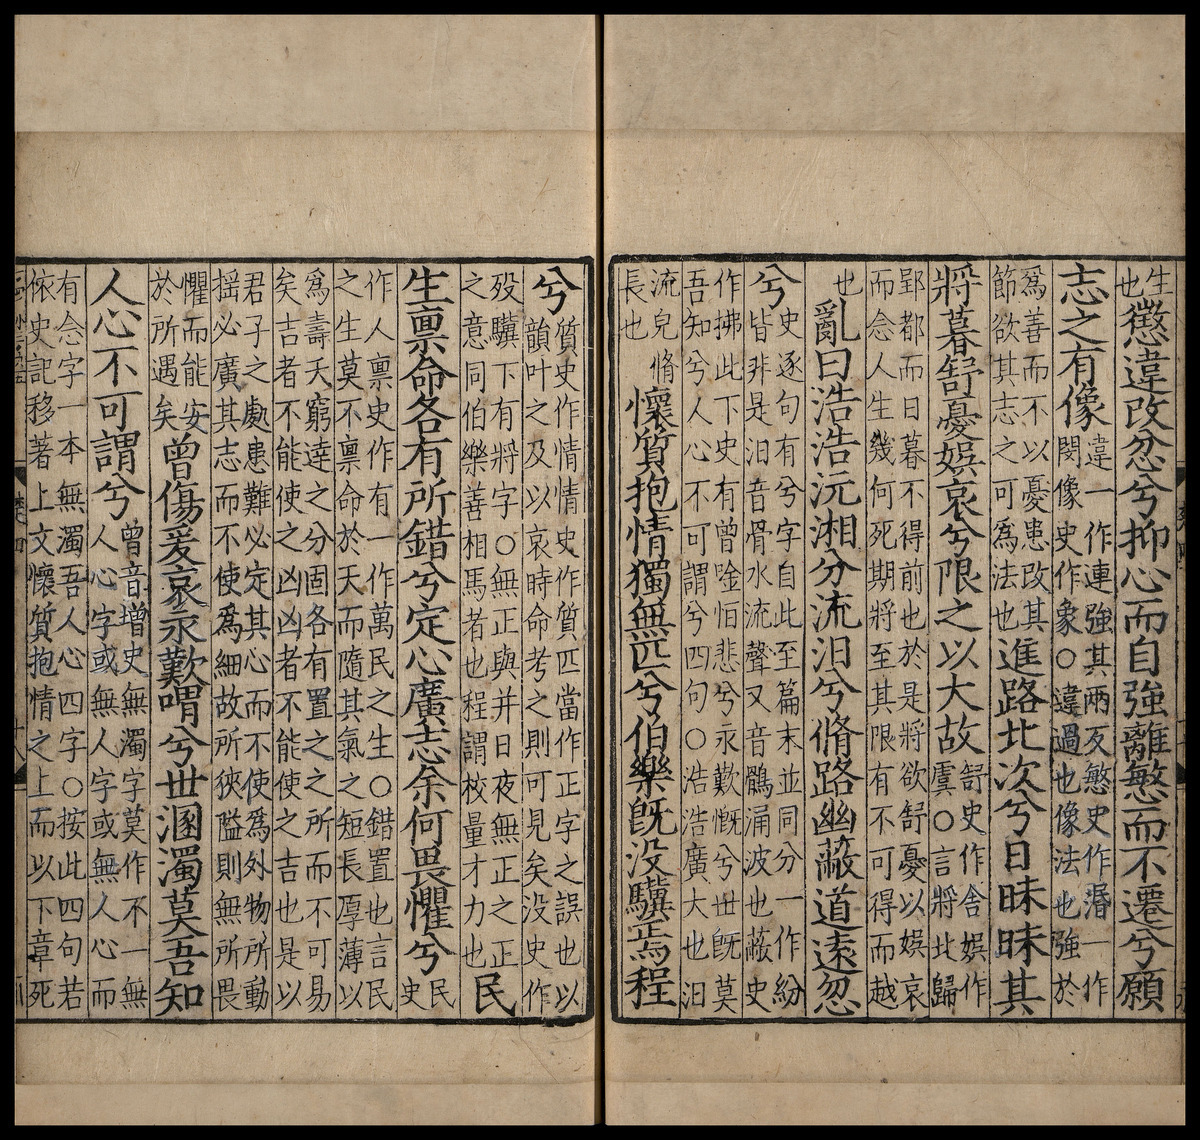 生也懲違改忿兮抑心而自強離慜而不遷兮願
志之有像違一作連強其兩反慜史作湣一作閔像史作象○違過也像法也強於
爲善而不以憂患改其節欲其志之可爲法也進路北次兮日昧昧其
將暮舒憂娛哀兮限之以大故舒史作舍娛作虞○言將北歸
郢都而日暮不得前也於是將欲舒憂以娛哀而念人生幾何死期將至其限有不可得而越
也亂曰浩浩沅湘分流汨兮脩路幽蔽道遠忽
兮史逐句有兮字自此至篇末並同分一作紛皆非是汨音骨水流聲又音鶻涌波也蔽史
作拂此下史有曾唫恒悲兮永歎慨兮世既莫吾知兮人心不可謂兮四句○浩浩廣大也汨
流皃脩長也懷質抱情獨無匹兮伯樂既没驥焉程
兮質史作情情史作質匹當作正字之誤也以韻叶之及以哀時命考之則可見矣没史作
殁驥下有將字○無正與并日夜無正之正之意同伯樂善相馬者也程謂校量才力也民
生禀命各有所錯兮定心廣志余何畏懼兮民史
作人禀史作有一作萬民之生○錯置也言民之生莫不禀命於天而隨其氣之短長厚薄以
爲壽夭窮達之分固各有置之之所而不可易矣吉者不能使之凶凶者不能使之吉也是以
君子之處患難必定其心而不使爲外物所動揺必廣其志而不使爲細故所狹隘則無所畏
懼而能安於所遇矣曾傷爰哀永歎喟兮世溷濁莫吾知
人心不可謂兮曾音增史無濁字莫作不一無人心字或無人字或無人心而
有念字一本無濁吾人心四字○按此四句若依史記移著上文懷質抱情之上而以下章死